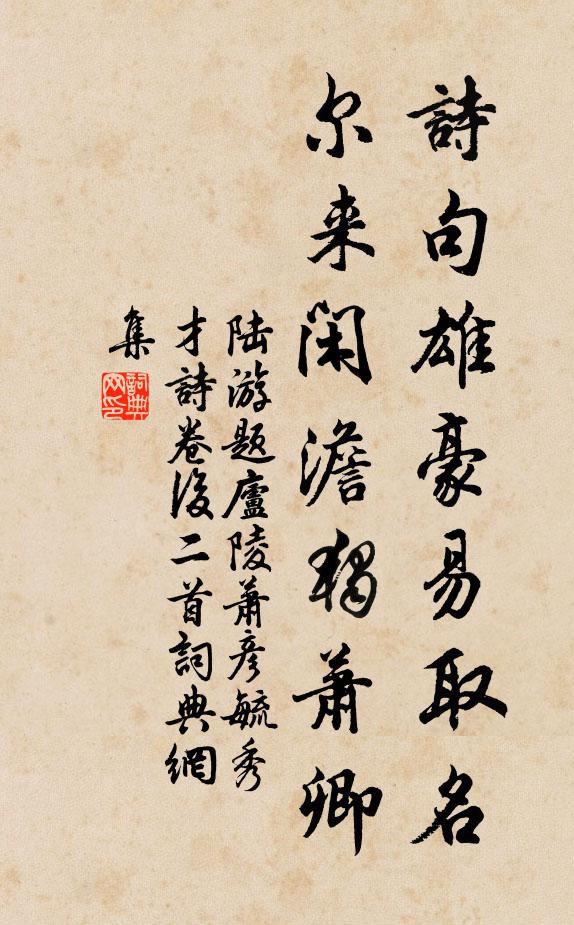 詩句雄豪易取名
尔来闲澹独蕭卿
陆游题廬陵蕭彦毓秀
才詩卷後二首詞典網
集
詞典网印